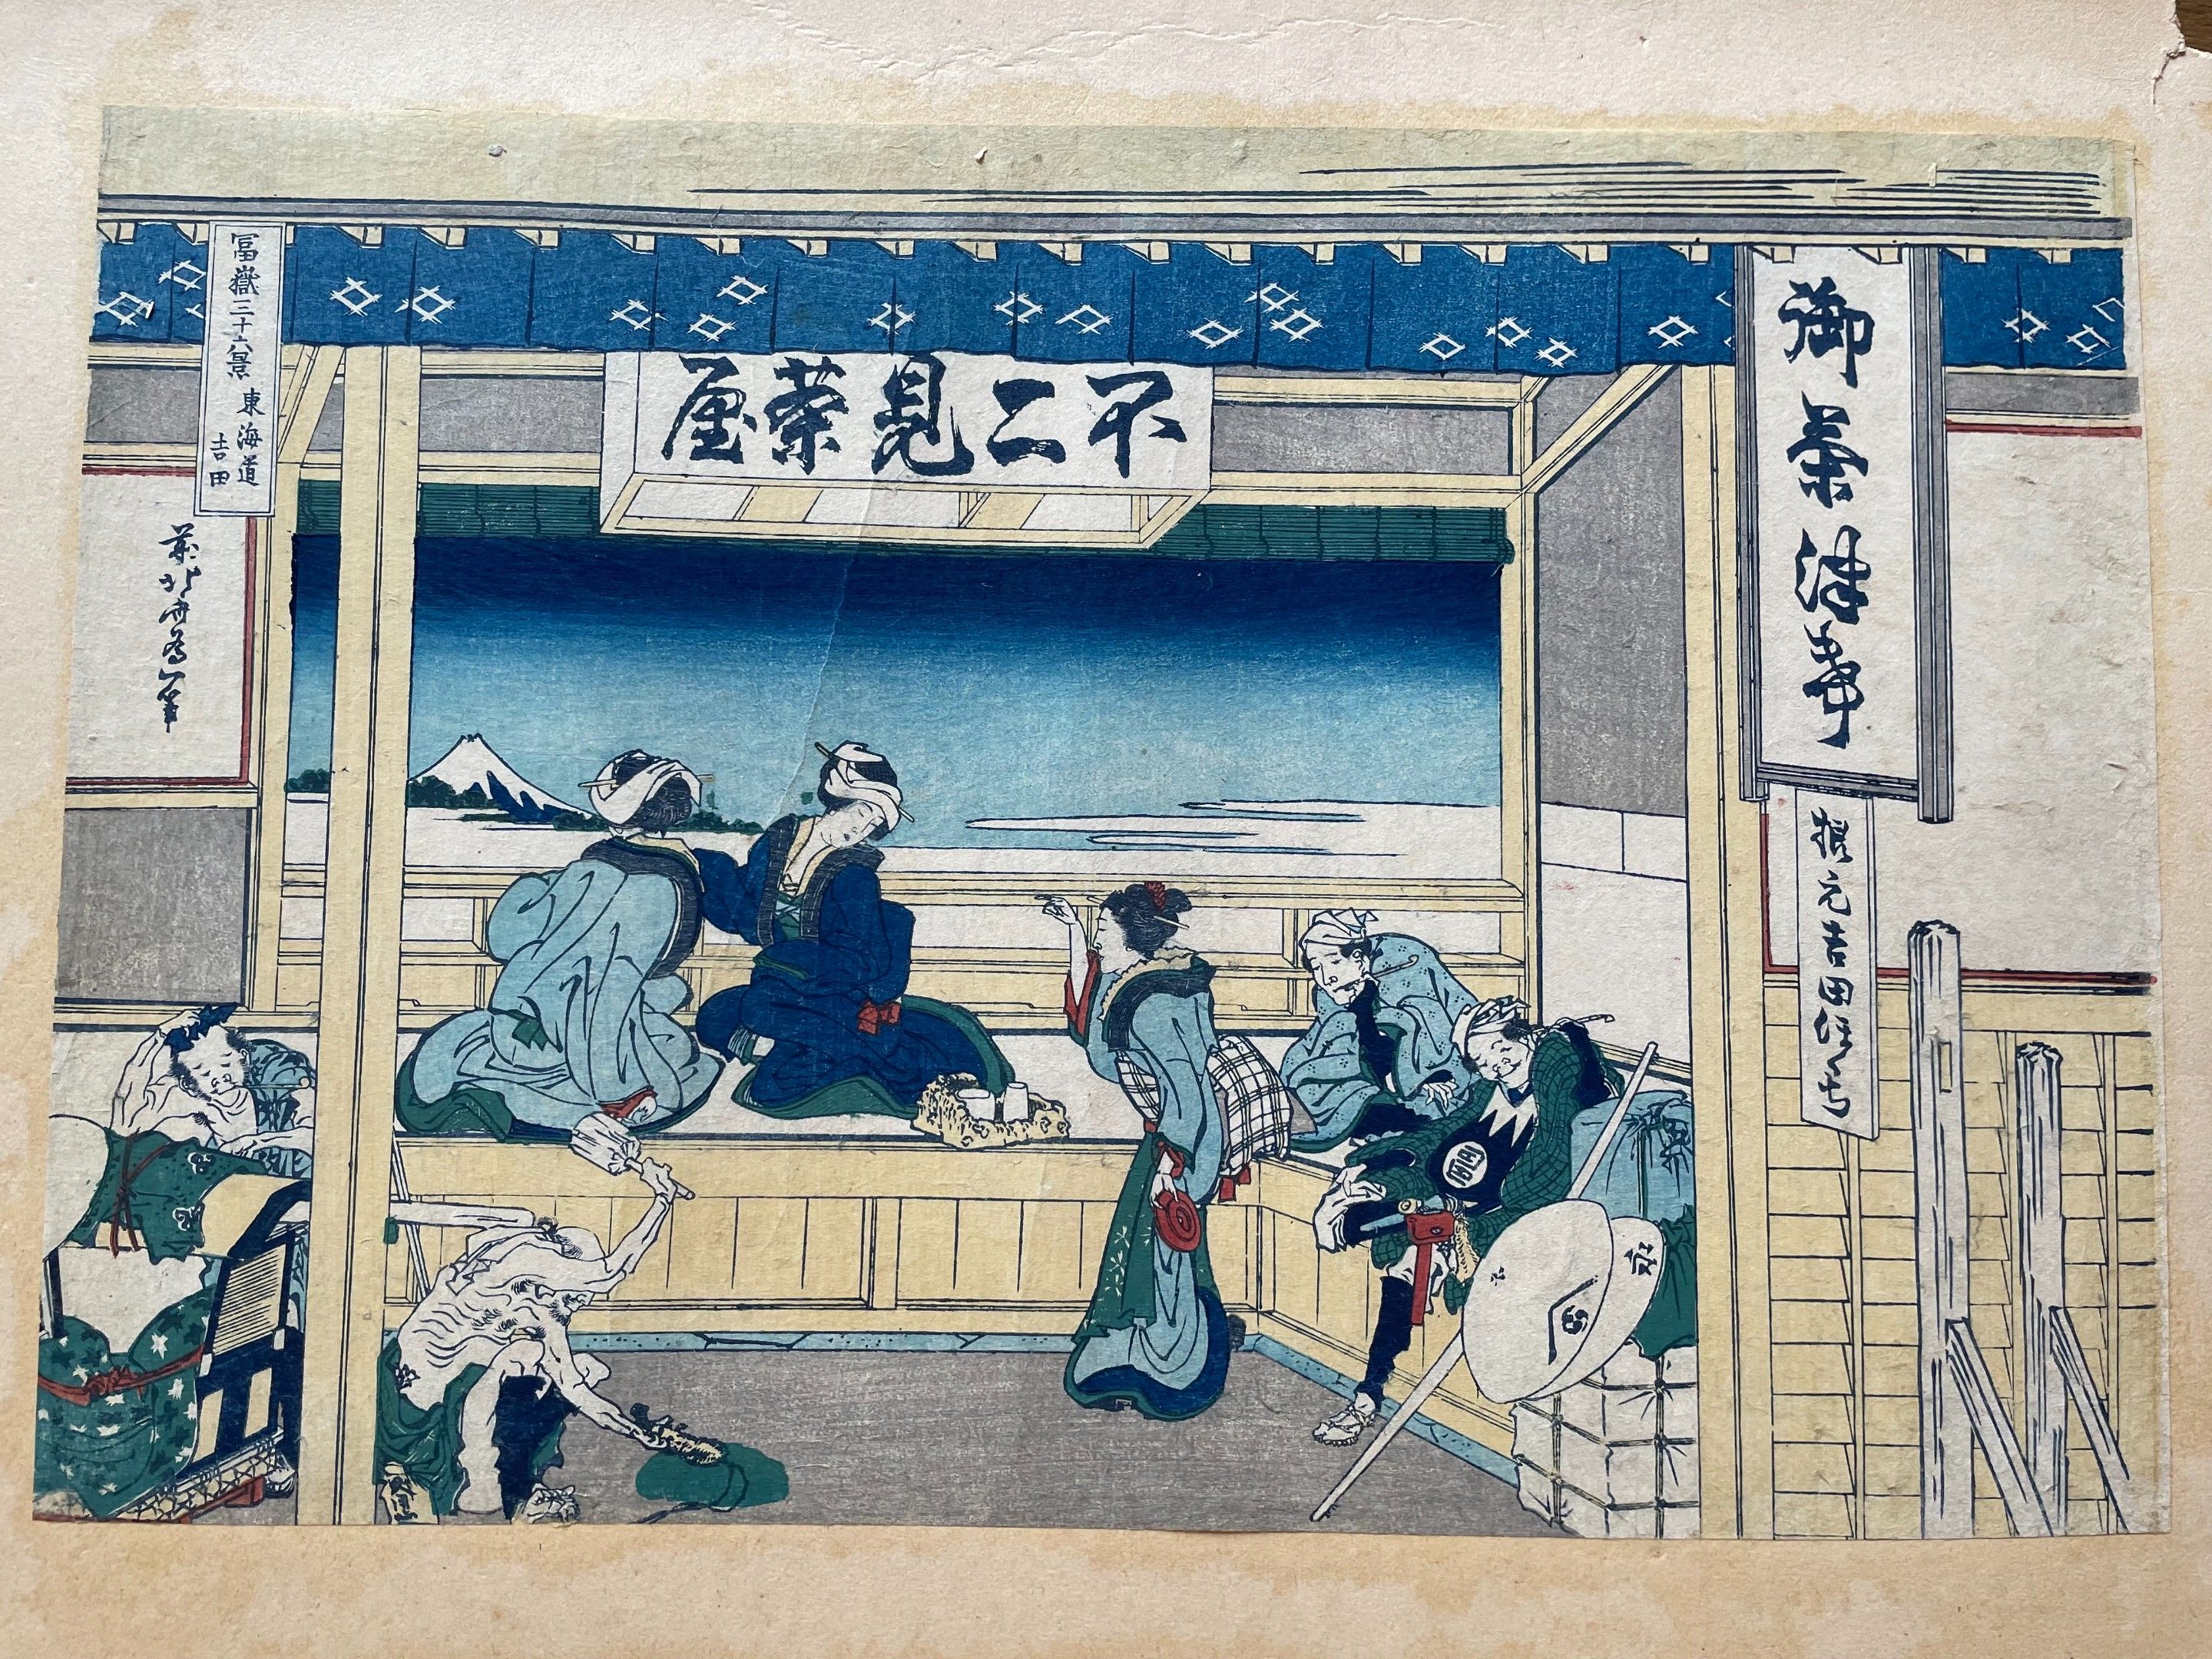 冨嶽三十六景
東海道
吉田
前北斎為一筆
不二見茶屋
御茶津
根元吉田